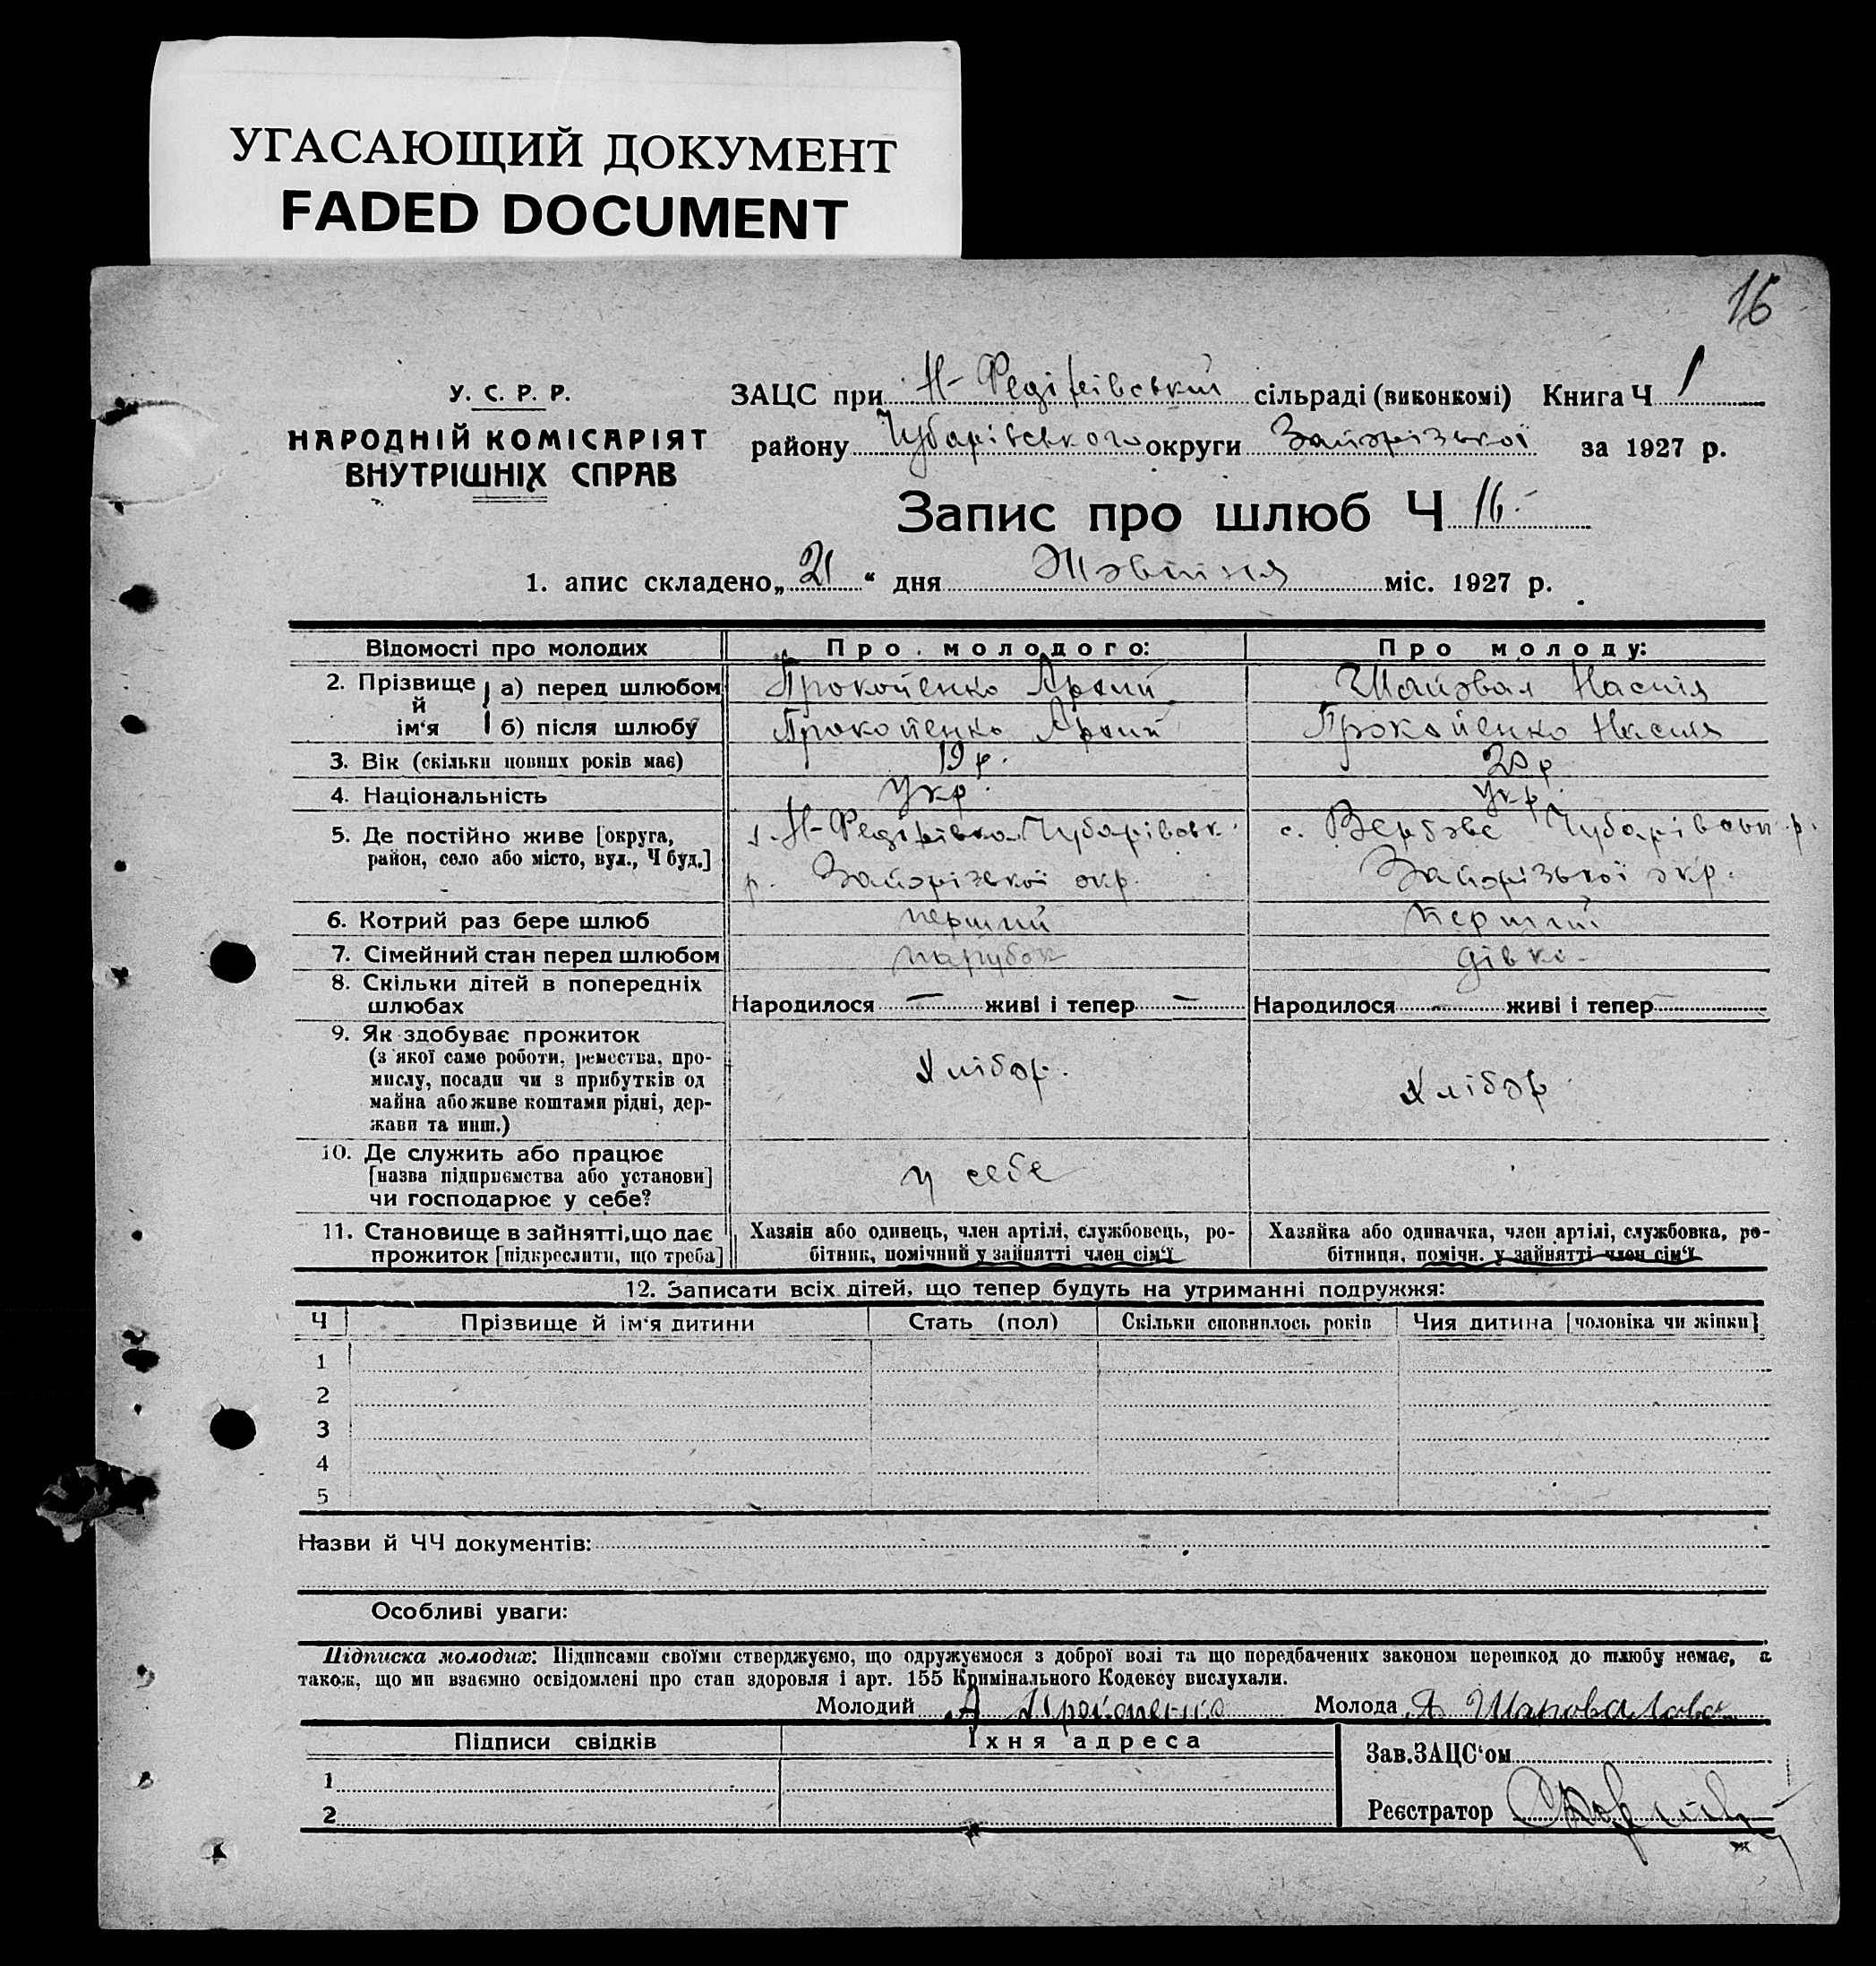 УГАСАЮЩИЙ ДОКУМЕНТ
FADED DOCUMENT
16
У. С. Р. Р.
НАРОДНІЙ КОМІСАРІЯТ
ВНУТРІШНІХ СПРАВ
ЗАЦС при Н-Федірівській сільраді (виконкомі) Книга Ч 1
району Чубарівського округи Запорізької за 1927 р.
Запис про шлюб Ч 16.
1. апис складено „21“ дня Жовтня міс. 1927 р.
Відомості про молодих Про молодого: Про молоду:
2. Прізвище й ім‘я а) перед шлюбом Прокопенко Шаповал Настя
б) після шлюбу Прокопенко Прокопенко Настя
3. Вік (скільки повних років має) 19 р. 20 р.
4. Національність Укр. укр.
5. Де постійно живе [округа, с. Н-Федірівка Чубарівськ. с. Вербове Чубарівськ. р.
район, село або місто, вул., Ч буд.] р. Запорізької окр. Запорізької окр.
6. Котрий раз бере шлюб перший перший
7. Сімейний стан перед шлюбом парубок дівка
8. Скільки дітей в попередніх
шлюбах Народилося — живі і тепер — Народилося - живі і тепер
9. Як здобуває прожиток
(з якої саме роботи, ремества, про-
мислу, посади чи з прибутків од
майна або живе коштами рідні, дер-
жави та инш.) Хлібор. Хлібор.
10. Де служить або працює
[назва підприємства або установи] у себе
чи господарює у себе?
11. Становище в зайнятті, що дає Хазяїн або одинець, член артілі, службовець, ро- Хазяйка або одиначка, член артілі, службовка, ро-
прожиток [підкреслити, що треба] бітник, помічний у зайнятті член сім‘ї бітниця, помічн. у зайнятті член сім‘ї
12. Записати всіх дітей, що тепер будуть на утриманні подружжя:
Ч Прізвище й ім‘я дитини Стать (пол) Скільки сповнилось років Чия дитина [чоловіка чи жінки]
1
2
3
4
5
Назви й ЧЧ документів:
Особливі уваги:
Підписка молодих: Підписами своїми стверджуємо, що одружуємося з доброї волі та що передбачених законом перешкод до шлюбу немає, а
також, що ми взаємно освідомлені про стан здоровля і арт. 155 Кримінального Кодексу вислухали.
Молодий А Прокопенко Молода А Шаповалова
Підписи свідків Їхня адреса
Зав.ЗАЦС‘ом
1
Реєстратор
2